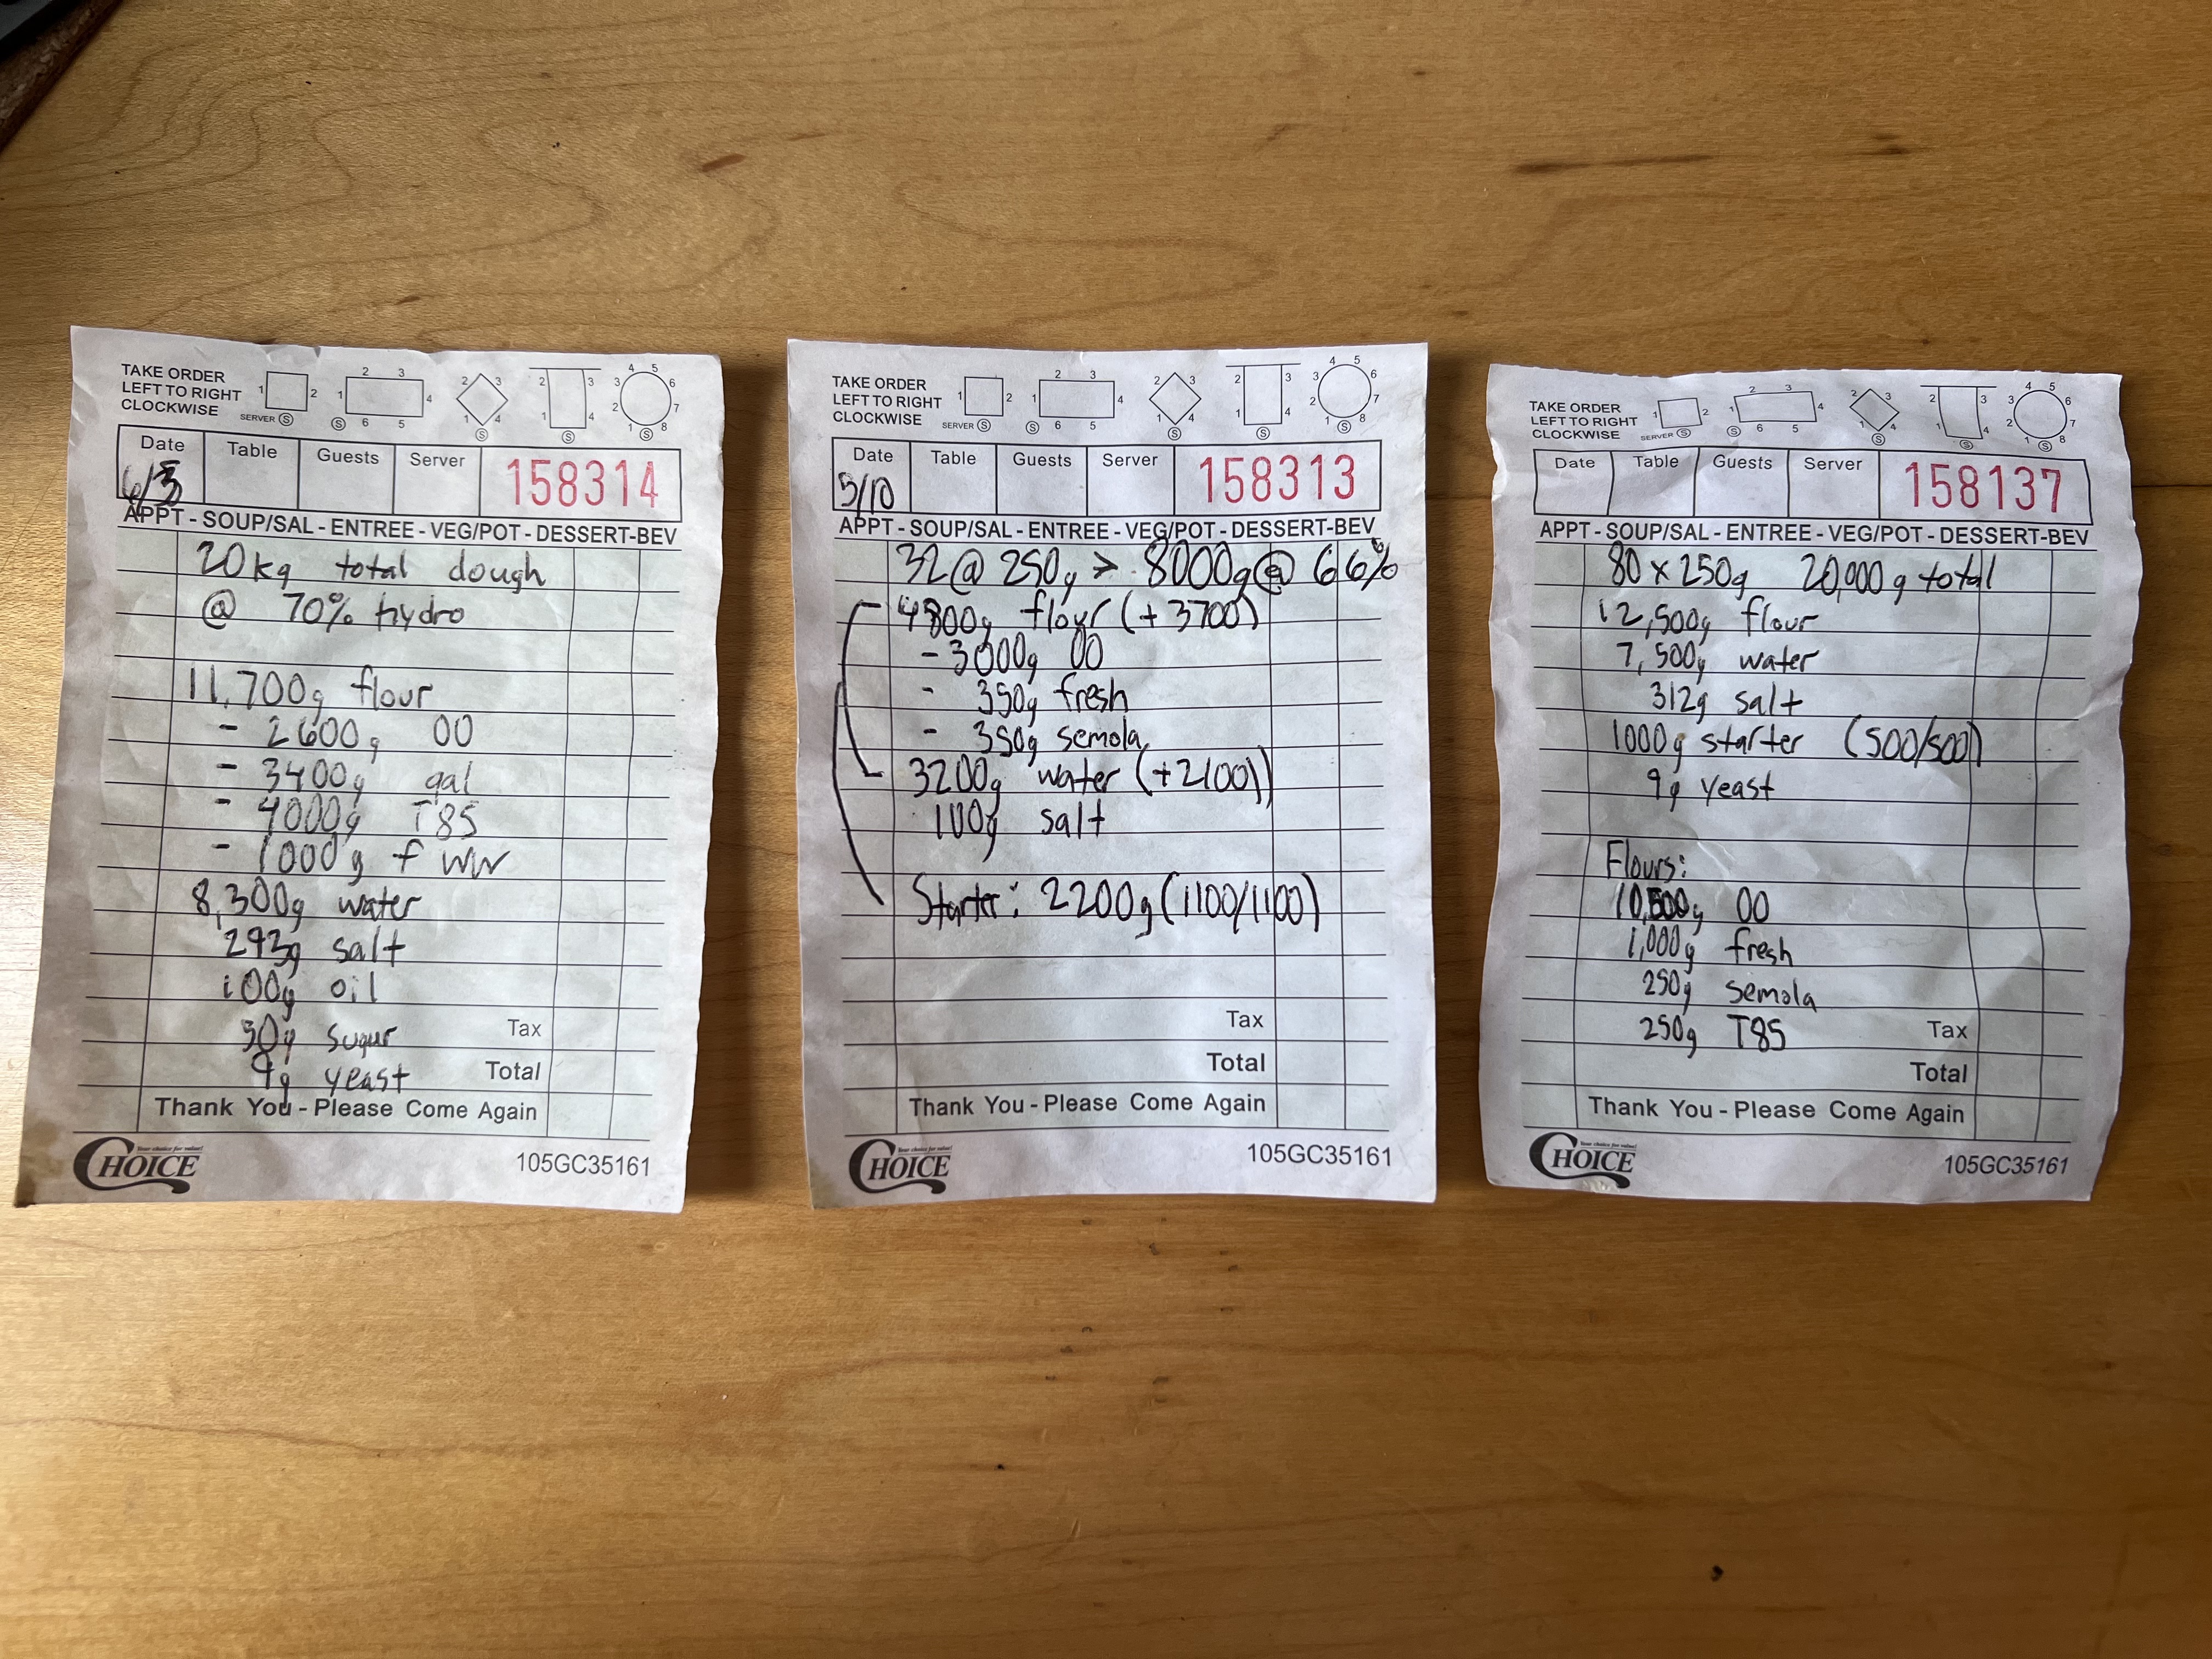 TAKE ORDER
LEFT TO RIGHT
CLOCKWISE
SERVER S
1 2
1 2 3 4 5 6 S
1 2 3 4 S
1 2 3 4 S
1 2 3 4 5 6 7 8 S
Date Table Guests Server 158314
APPT - SOUP/SAL - ENTREE - VEG/POT - DESSERT-BEV
20kg total dough
@ 70% hydro
11,700g flour
- 2600g 00
- 3400g gal
- 4000g T85
- 1000g f WW
8,300g water
293g salt
100g oil
50g sugar Tax
9g yeast Total
Thank You - Please Come Again
Your choice for value!
CHOICE 105GC35161
TAKE ORDER
LEFT TO RIGHT
CLOCKWISE
SERVER S
1 2
1 2 3 4 5 6 S
1 2 3 4 S
1 2 3 4 S
1 2 3 4 5 6 7 8 S
Date Table Guests Server 158313
5/10
APPT - SOUP/SAL - ENTREE - VEG/POT - DESSERT-BEV
32@ 250g > 8000g@ 66%
4800g flour (+3700)
- 3000g 00
- 350g fresh
- 350g semola
3200g water (+2100)
100g salt
Starter: 2200g (1100/1100)
Tax
Total
Thank You - Please Come Again
Your choice for value!
CHOICE 105GC35161
TAKE ORDER
LEFT TO RIGHT
CLOCKWISE
SERVER S
1 2
1 2 3 4 5 6 S
1 2 3 4 S
1 2 3 4 S
1 2 3 4 5 6 7 8 S
Date Table Guests Server 158137
APPT - SOUP/SAL - ENTREE - VEG/POT - DESSERT-BEV
80 x 250g 20,000g total
12,500g flour
7,500g water
312g salt
1000g starter (500/500)
9g yeast
Flours:
10,500g 00
1,000g fresh
250g semola
250g T85 Tax
Total
Thank You - Please Come Again
Your choice for value!
CHOICE 105GC35161